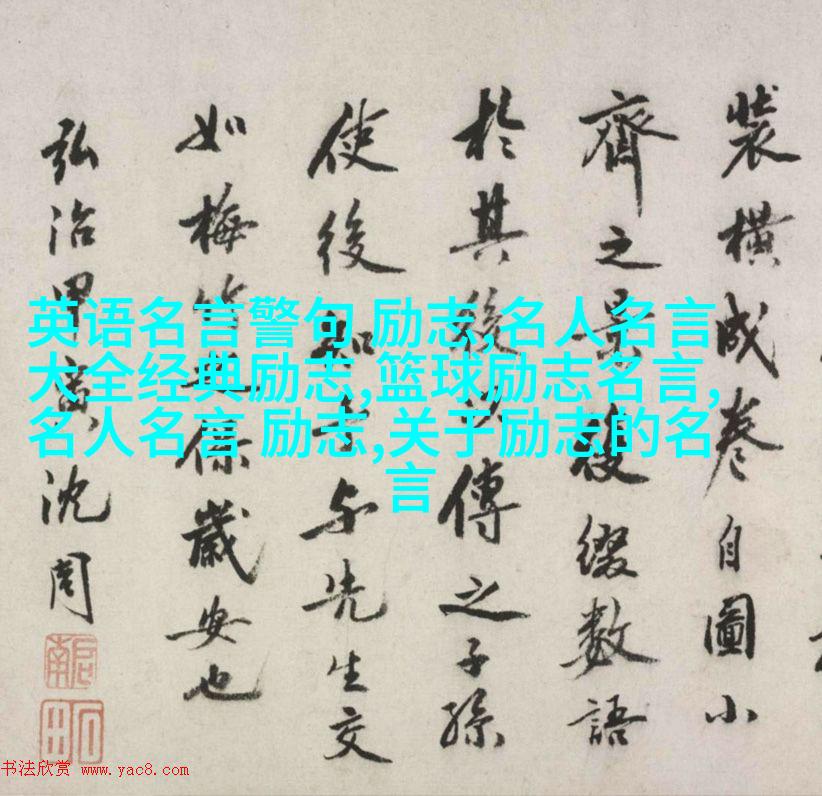 裝橫成卷自圖小
齊之景後綴數語
於其後以傳之子孫
使後知吾与先生交
如梅保歲安也
弘治甲寅沈周
啟南
石田
英语名言警句 励志,名人名言
大全经典励志,篮球励志名言,
名人名言 励志,关于励志的名
言
书法欣赏 www.yac8.com